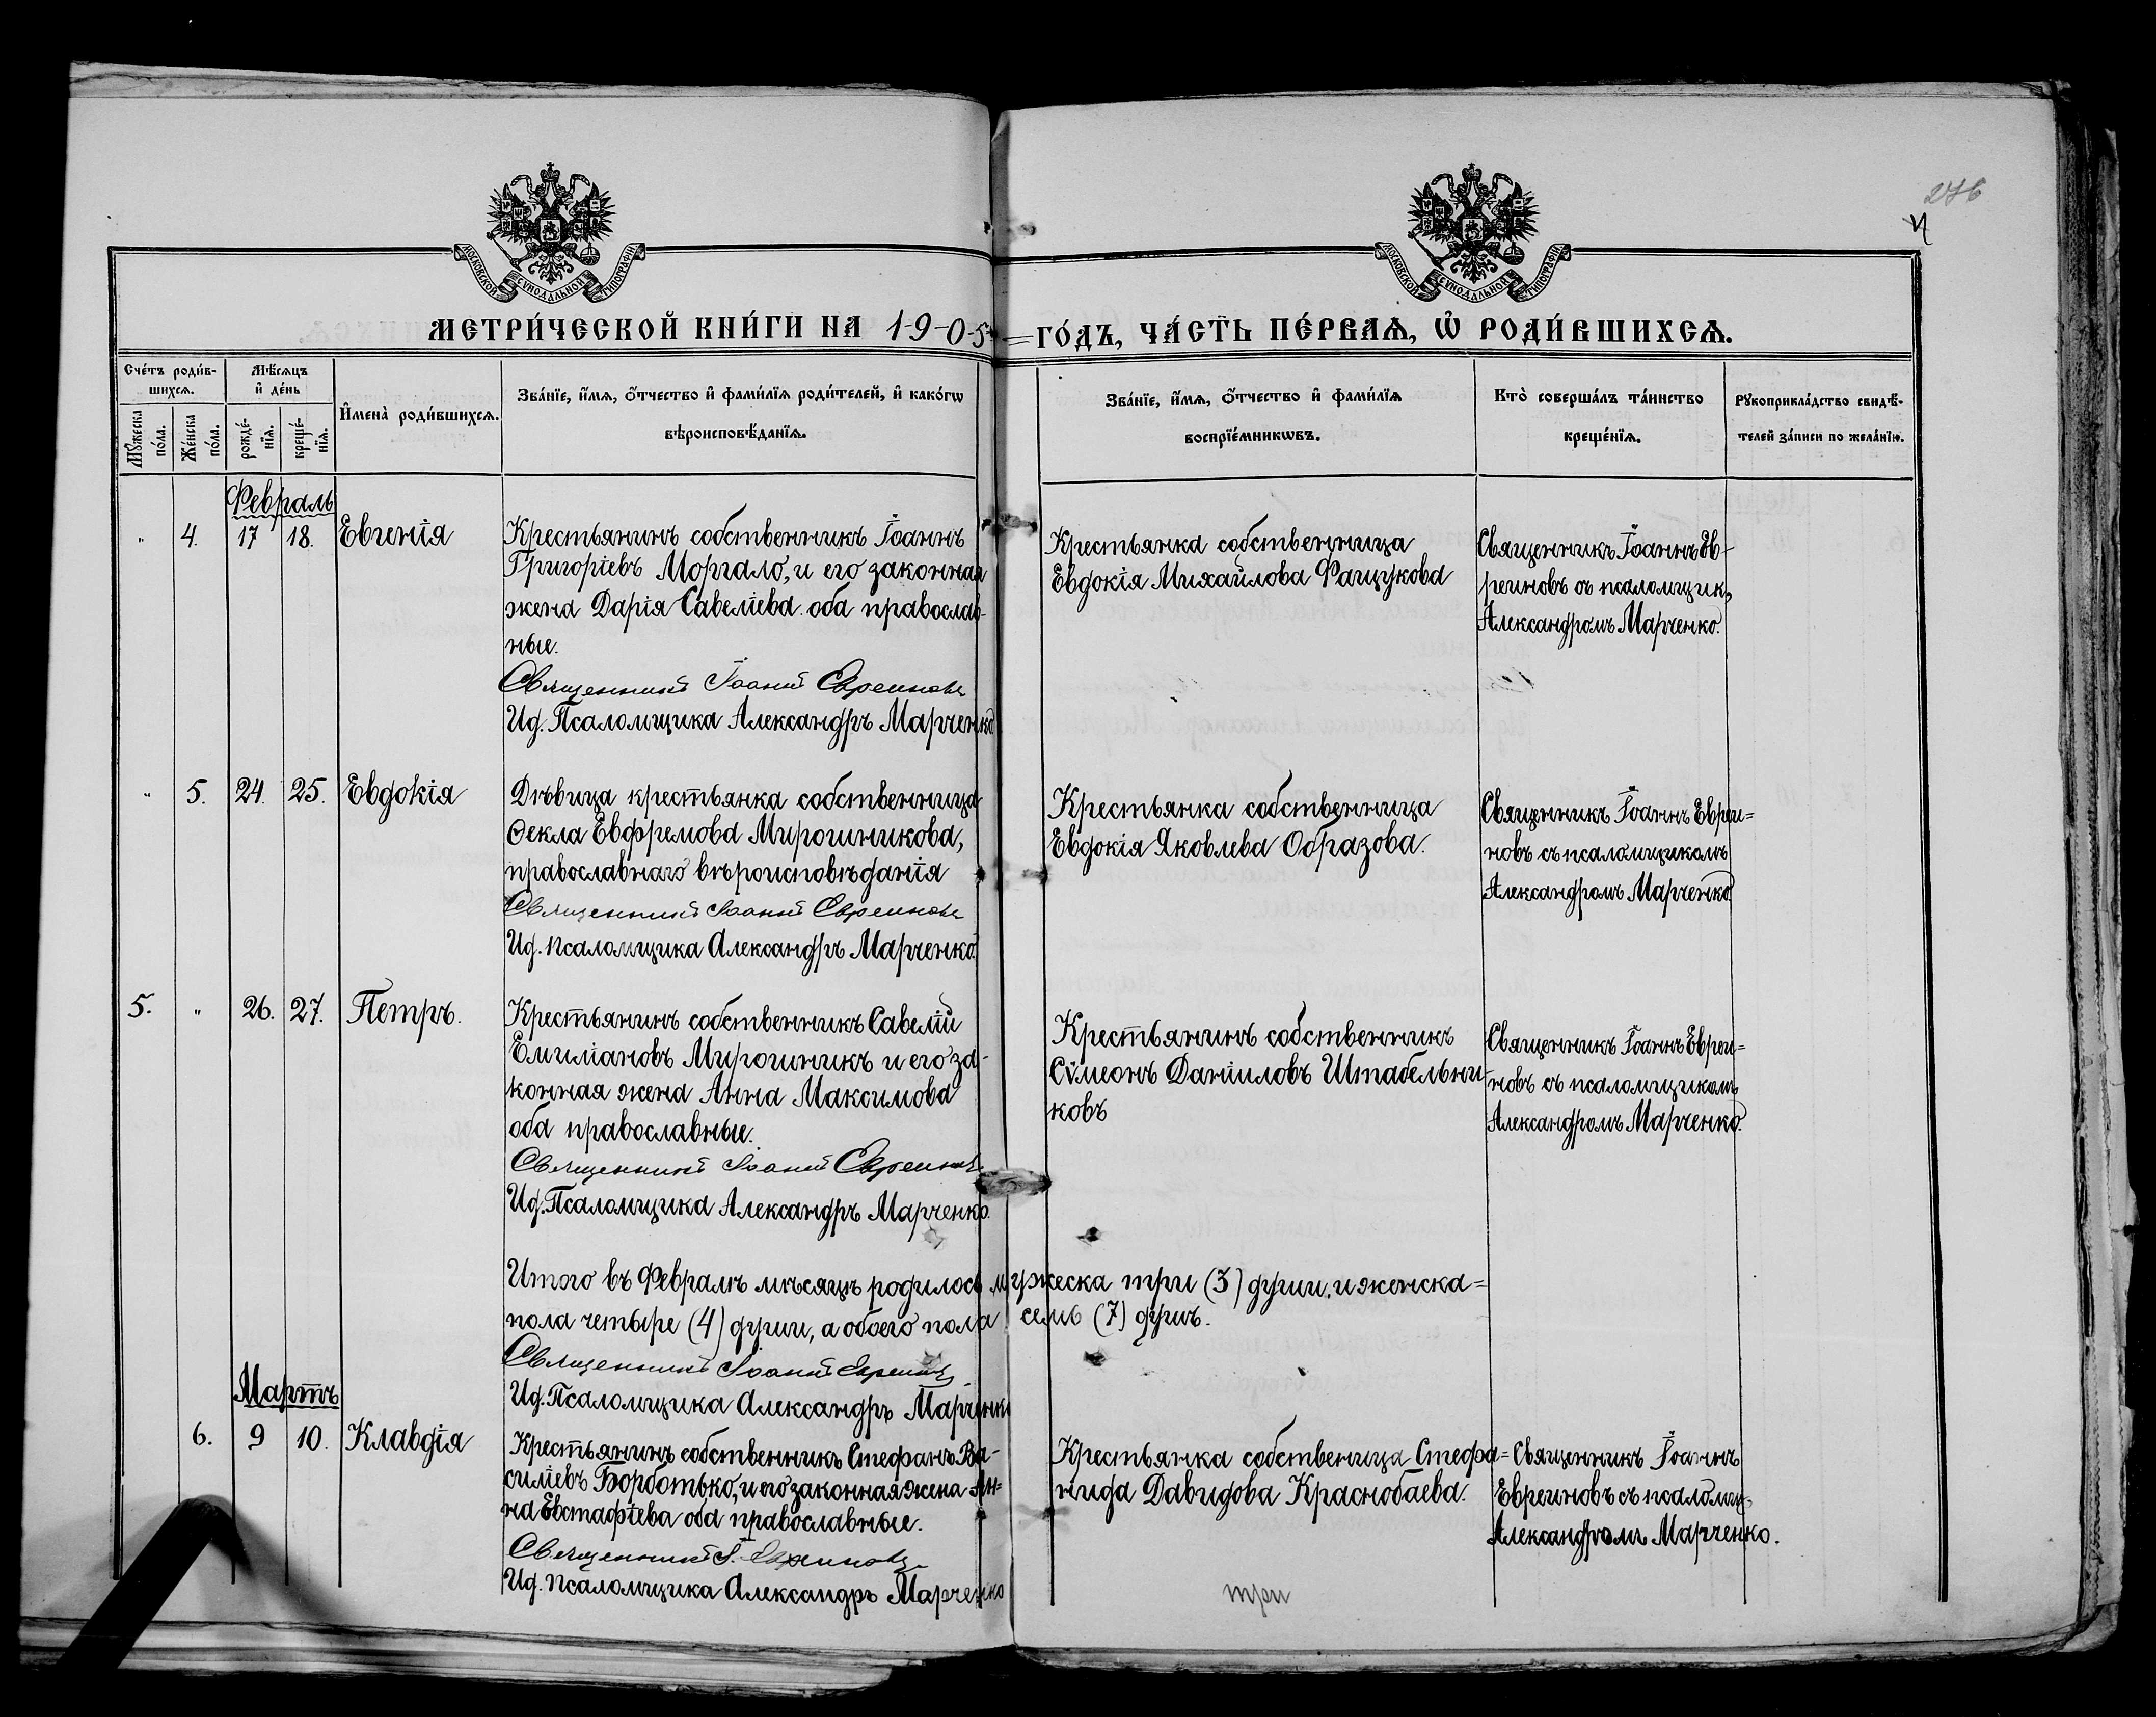 276
МОСКОВСКОЙ СѴНОДАЛЬНОЙ ТИПОГРАФІИ
МОСКОВСКОЙ СѴНОДАЛЬНОЙ ТИПОГРАФІИ
МЕТРИ́ЧЕСКОЙ КНИ́ГИ НА 1-9-0-5= =ГО́ДЪ, ЧА́СТЬ ПЕ́РВАѦ, Ѽ РОДИ́ВШИХСѦ.
Сче́тъ роди́в-
шихсѧ.
Мꙋжеска по́ла.
Же́нска по́ла.
Мѣ́сѧцъ
и҆ де́нь
рожде́-
нїѧ.
креще́-
нїѧ.
И҆мена̀ роди́вшихсѧ.
Зва́нїе, и҆́мѧ, ѻ҆́тчество и҆ фами́лїѧ роди́телей, и҆ како́гѡ
вѣроисповѣ́данїѧ.
Зва́нїе, и҆́мѧ, ѻ҆́тчество и҆ фами́лїѧ
воспрїе́мникѡвъ.
Кто̀ соверша́лъ та́инство
креще́нїѧ.
Рꙋкоприкла́дство свидѣ́-
телей за́писи по жела́нїю.
Февраль
" 4. 17 18. Евгенія
Крестьянинъ собственникъ Іоаннъ
Григоріевъ Моргало, и его законная
жена Дарія Савеліева оба православ-
ные.
Священникъ Іоаннъ Евреиновъ
Ид. Псаломщика Александръ Марченко
Крестьянка собственница
Евдокія Михайлова Фащукова
Священникъ Іоаннъ Ев-
реиновъ съ псаломщик.
Александромъ Марченко.
" 5. 24. 25. Евдокія
Дѣвица крестьянка собственница
Ѳекла Евфремова Мирошникова,
православнаго вѣроисповѣданія
Священникъ Іоаннъ Евреиновъ
Ид. псаломщика Александръ Марченко.
Крестьянка собственница
Евдокія Яковлева Образова.
Священникъ Іоаннъ Евреи=
новъ съ псаломщикомъ
Александромъ Марченко.
5. " 26. 27. Петръ.
Крестьянинъ собственникъ Савелій
Емиліановъ Мирошникъ и его за-
конная жена Анна Максимова
оба православные.
Священникъ Іоаннъ Евреиновъ
Ид. Псаломщика Александръ Марченко.
Крестьянинъ собственникъ
Сѵмеонъ Даніиловъ Штабельни-
ковъ
Священникъ Іоаннъ Евреи=
новъ съ псаломщикомъ
Александромъ Марченко.
Итого въ Февралѣ мѣсяцѣ родилось мужеска три (3) души, и женска=
пола четыре (4) души, а обоего пола семь (7) душъ.
Священникъ Іоаннъ Евреиновъ
Ид. Псаломщика Александръ Марченко
Мартъ
6. 9 10. Клавдія
Крестьянинъ собственникъ Стефанъ Ва-
силіевъ Борботько, и его законная жена Ан=
на Евстафіева оба православные.
Священникъ І. Евреиновъ
Ид. псаломщика Александръ Марченко
Крестьянка собственица Стефа=
нида Давидова Краснобаева.
Священникъ Іоаннъ
Евреиновъ съ псаломщ.
Александромъ Марченко.
три